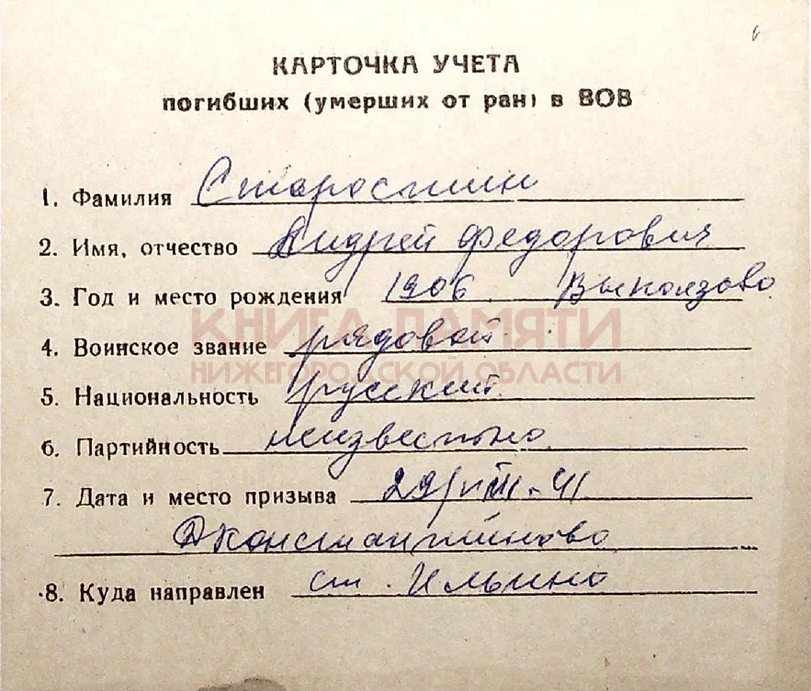 КАРТОЧКА УЧЕТА
погибших (умерших от ран) в ВОВ
1. Фамилия Старостин
2. Имя, отчество Андрей Федорович
3. Год и место рождения 1906 Выползово
КНИГА ПАМЯТИ
4. Воинское звание рядовой
НИЖЕГОРОДСКОЙ ОБЛАСТИ
5. Национальность русский
6. Партийность неизвестно
7. Дата и место призыва 29/VIII-41
Дконстантиново
8. Куда направлен ст. Ильино